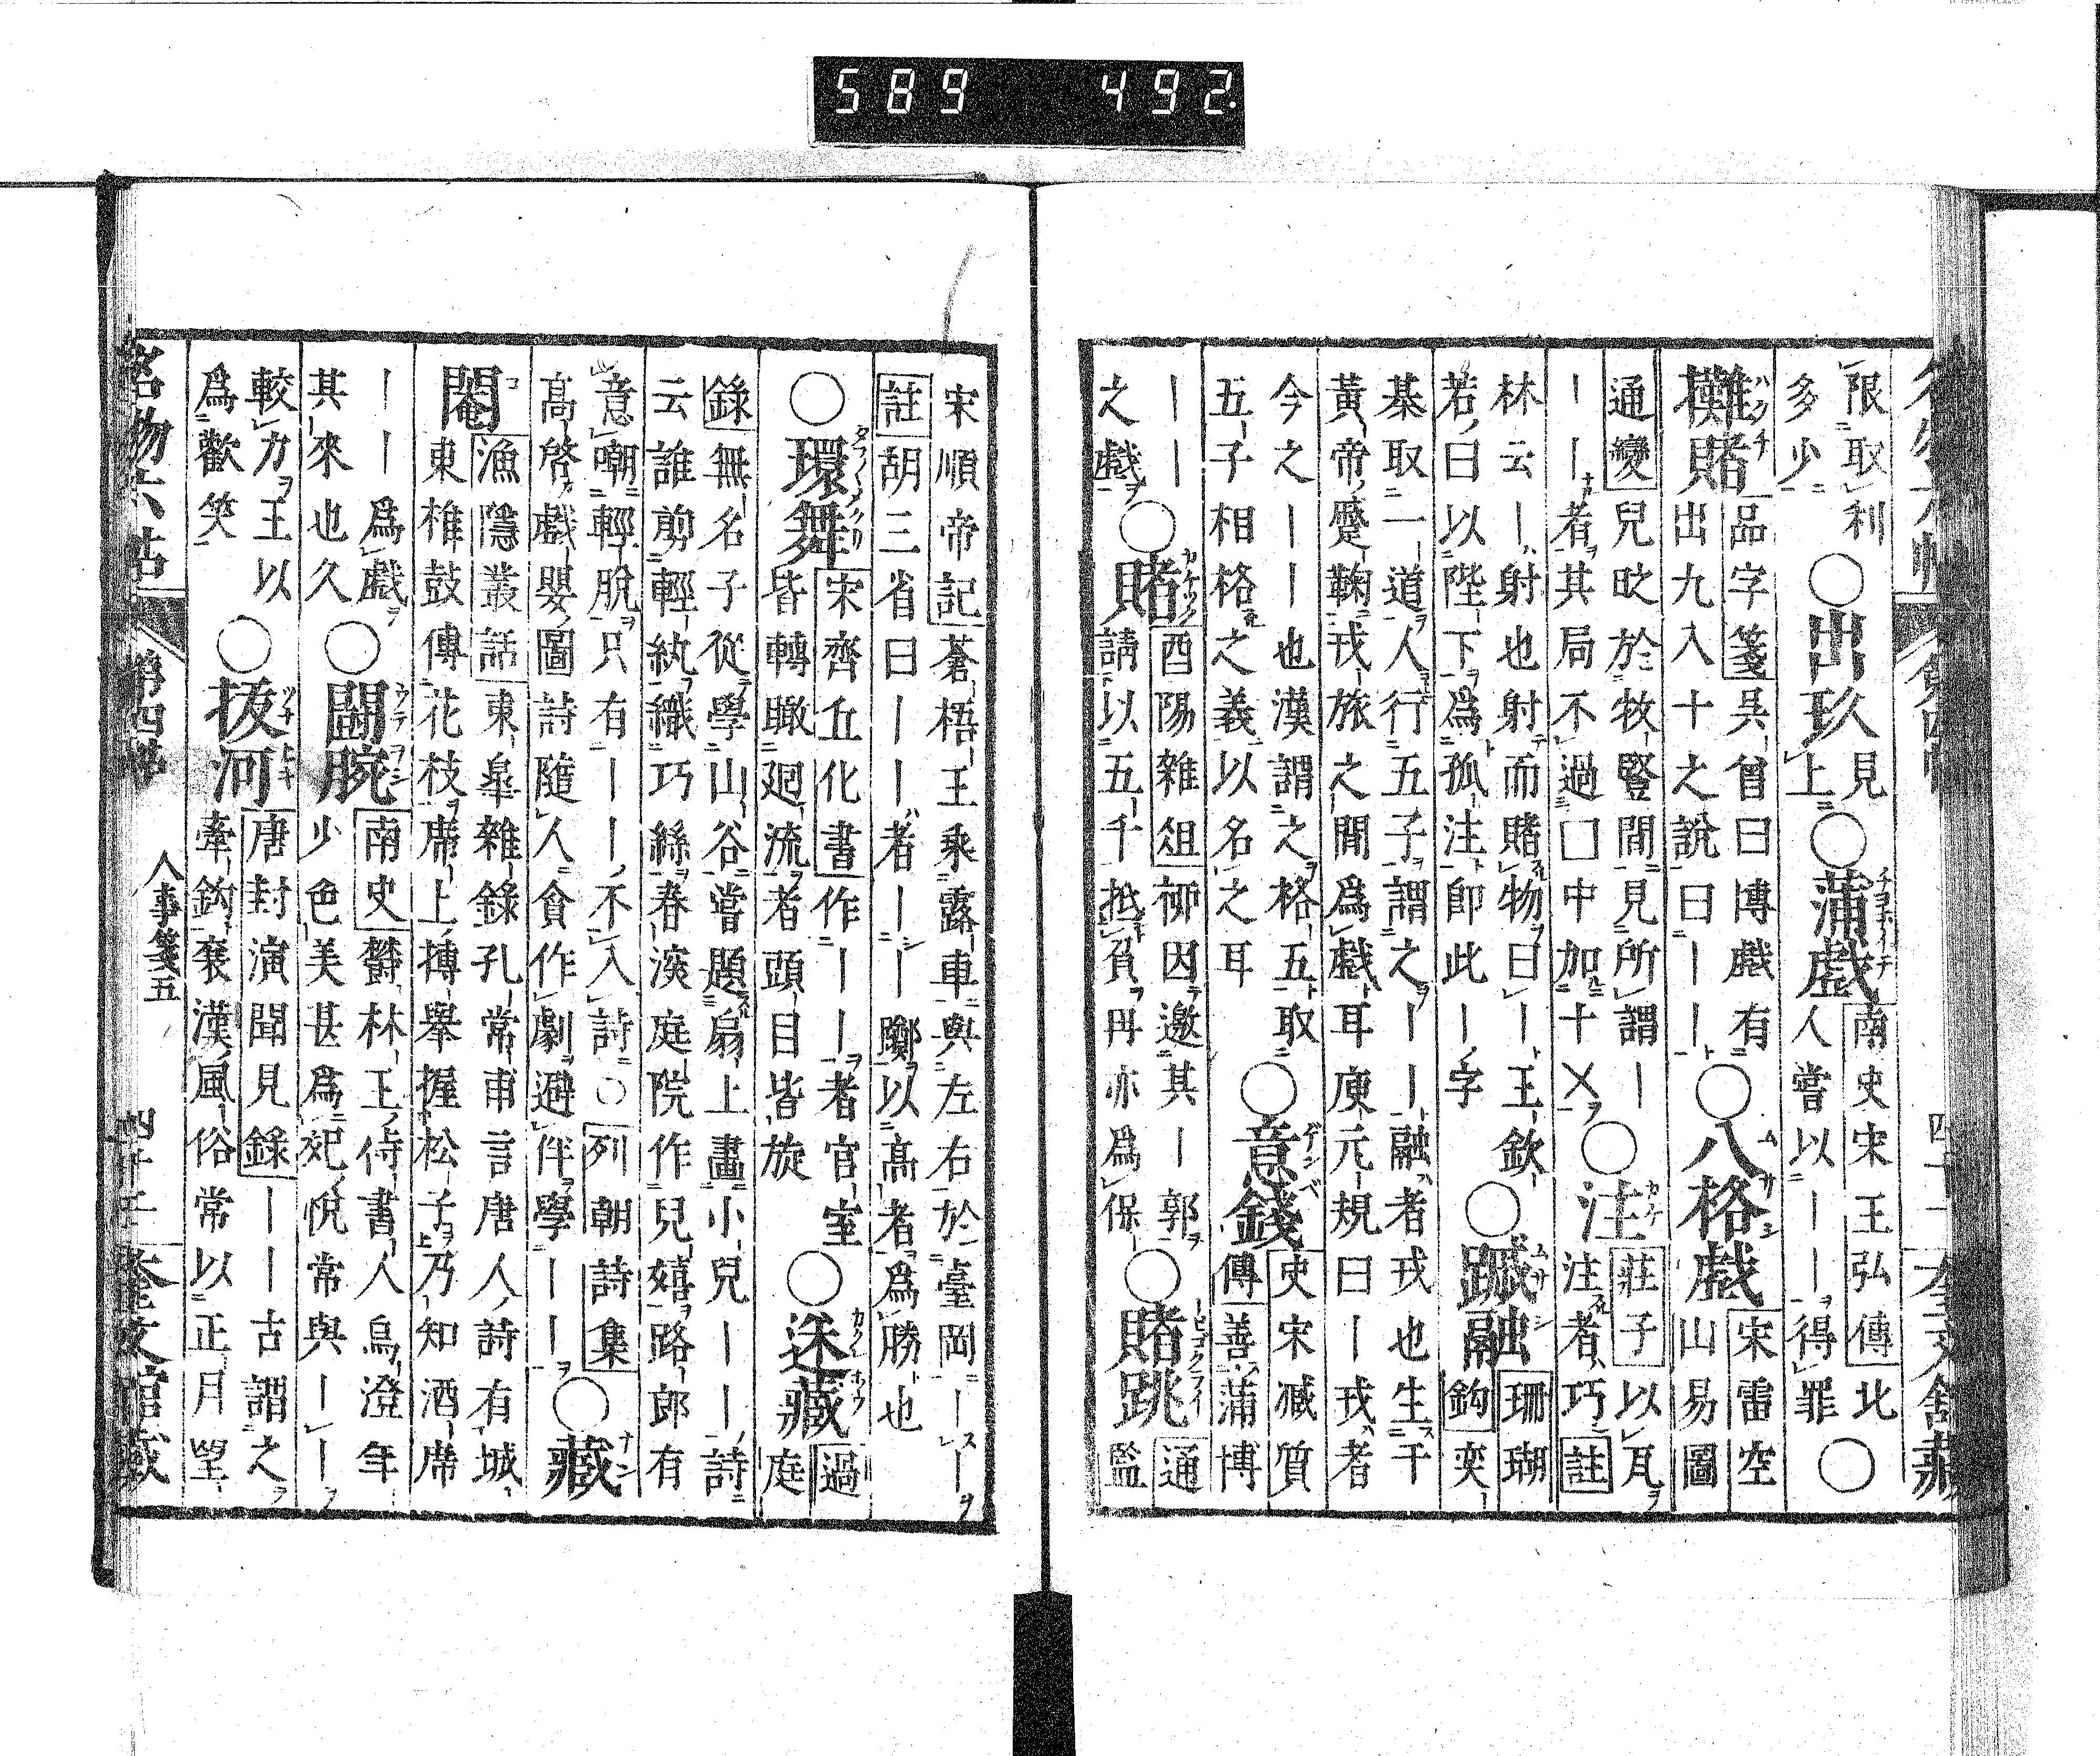 589 492.
限取利
多少
○出玖見上
○蒲戲南史宋王弘傳北
人嘗以｜｜得罪○
攤賭品字箋吳曾曰博戲有
出九入十之說曰｜｜
○八格戲宋雷空
山易圖
通變兒旼於牧豎間見所謂｜
｜｜者其局不過囗中加十㐅
○注莊子以瓦
注者巧註
林云｜射也射而賭物曰｜王欽
若曰以陛下爲孤注卽此｜字
○蹴融珊瑚
鈎奕
棊取一道人行五子謂之｜｜融者戎也生干
黃帝蹙鞠戎旅之間爲戲耳庾元規曰｜戎者
今之｜｜也漢謂之格五取
五子相格之義以名之耳
○意錢史宋臧質
傳善蒲博
｜｜
之戲
○賭酉陽雜俎栁因邀其｜郭
請以五千抵負冄亦爲保
○賭跳通
監
宋順帝記蒼梧王乘露車與左右於臺岡｜｜
註胡三省曰｜｜者｜｜躑以高者爲勝也
○環舞宋齊丘化書作｜｜者宮室
皆轉瞰廻流者頭目皆旋
○迷藏過
庭
錄無名子從學山谷嘗題扇上畫小兒｜｜詩
云誰剪輕紈織巧絲春溪庭院作兒嬉路郎有
意嘲輕脫只有｜｜不入詩○列朝詩集
高啓戲嬰圖詩隨人貪作劇避伴學｜｜
○藏
䦰漁隱叢話東皐雜錄孔常甫言唐人詩有城
東椎鼓傳花枝席上摶舉握松子乃知酒席
｜｜爲戲
其來也久
○鬪腕南史欎林王侍書人烏澄年
少色美甚爲妃悅常與｜｜
較力王以
爲歡笑
○拔河唐封演聞見錄｜｜古謂之
牽鈎襄漢風俗常以正月望
名物六帖 第四帖 人事箋五 奎文館藏